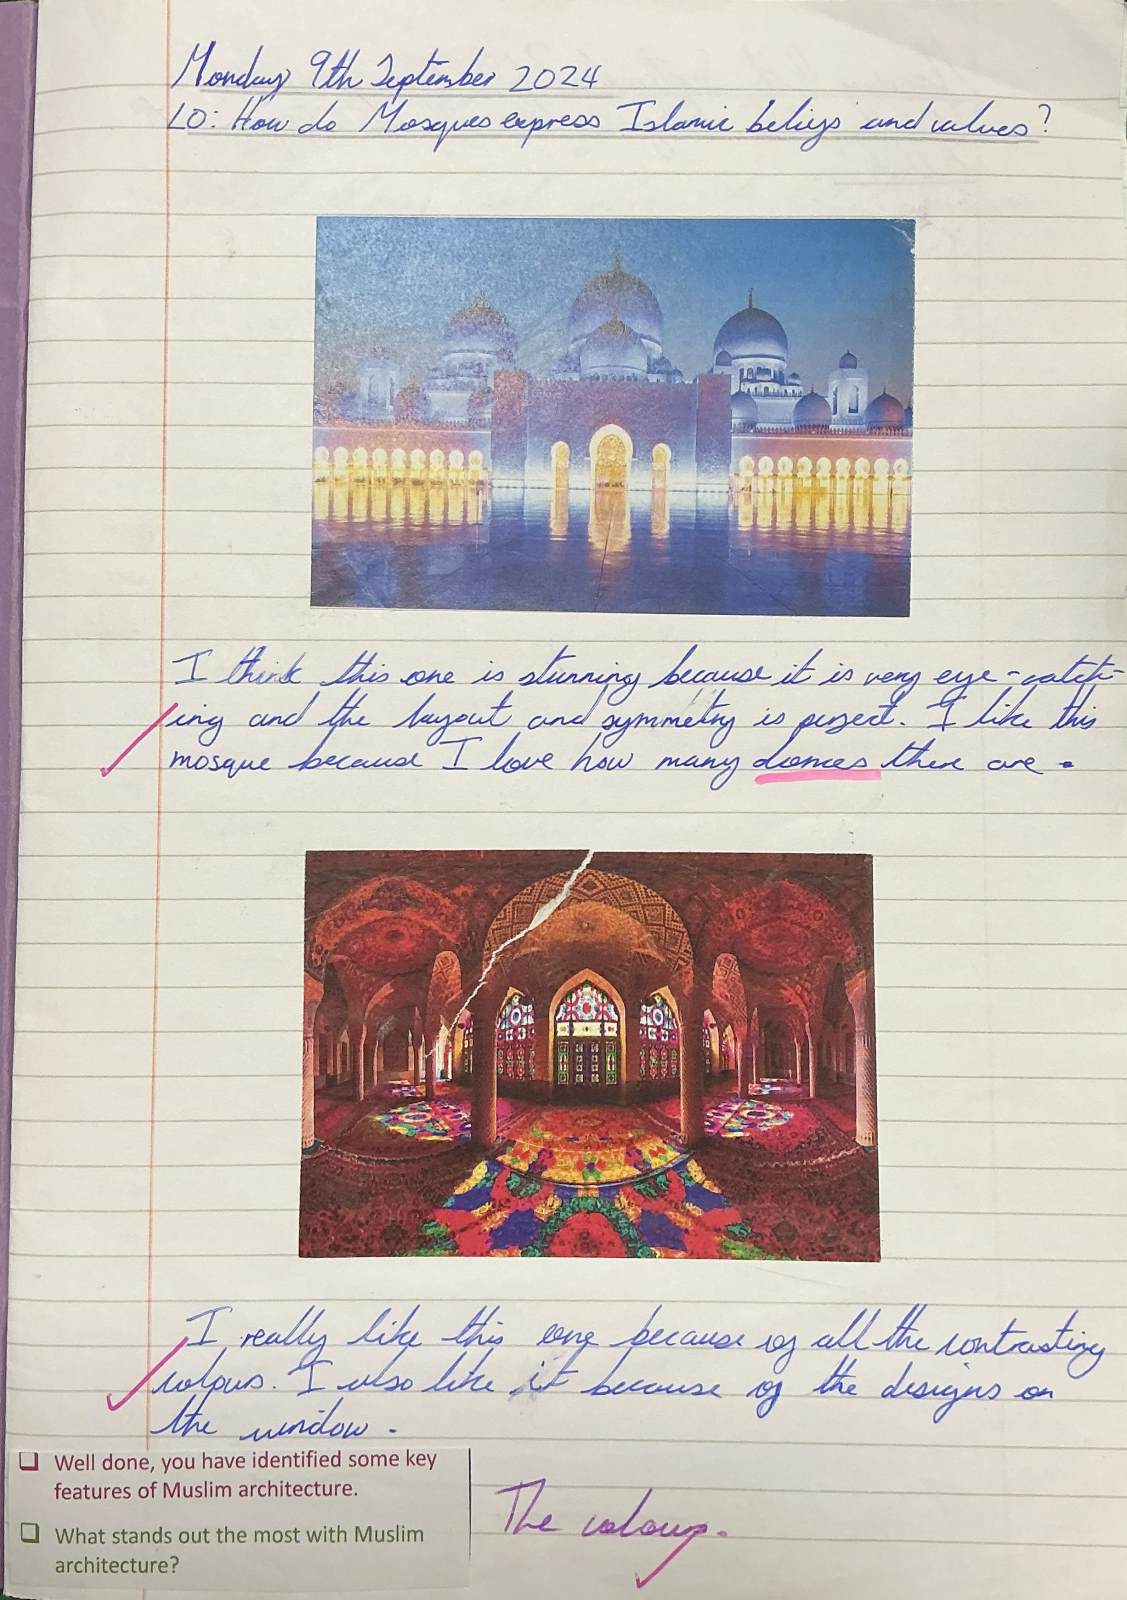 Monday 9th September 2024
LO: How do Mosques express Islamic beliefs and values?
I think this one is stunning because it is very eye-catch-
ing and the layout and symmetry is perfect. I like this
mosque because I love how many domes there are.
I really like this one because of all the contrasting
colours. I also like it because of the designs on
the window.
Well done, you have identified some key
features of Muslim architecture.
What stands out the most with Muslim
architecture?
The colours.